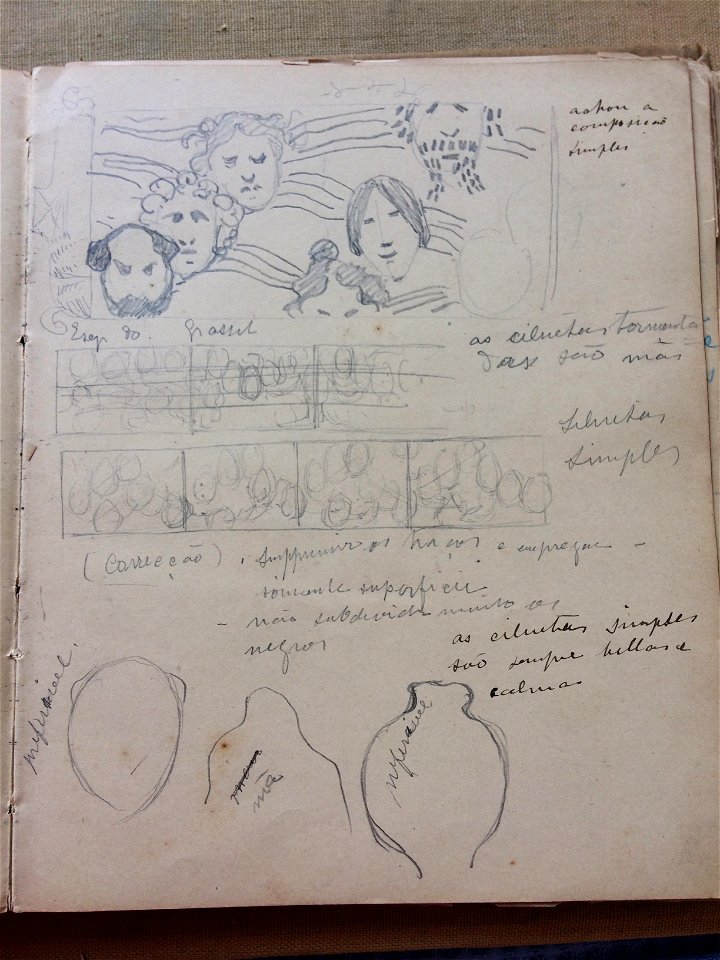 achou a
composição
simples
Esq. do. Grasset
as ciluetas tormenta
das são más
siluetas
simples
(Correcção). Supprimir os traços e empregar -
somente superficie
- não subdividir muito os
negros
as ciluetas simples
são sempre bellas e
calmas
preferivel
má
preferivel